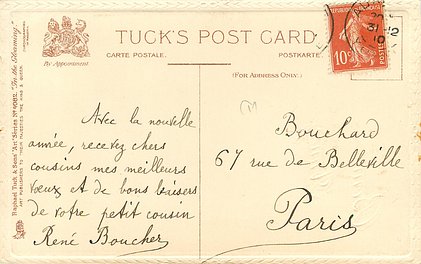 TUCK'S POST CARD
CARTE POSTALE.
POSTKARTE.
By Appointment
(FOR ADDRESS ONLY.)
Avec la nouvelle
année, recevez chers
cousins mes meilleurs
vœux et de bons baisers
de votre petit cousin
René Boucher
Bouchard
67 rue de Belleville
Paris
10c
POSTES
31-12
Raphael Tuck & Sons' "Art" Series Nº 6982. "In the Gloaming."
ART PUBLISHERS TO THEIR MAJESTIES THE KING & QUEEN